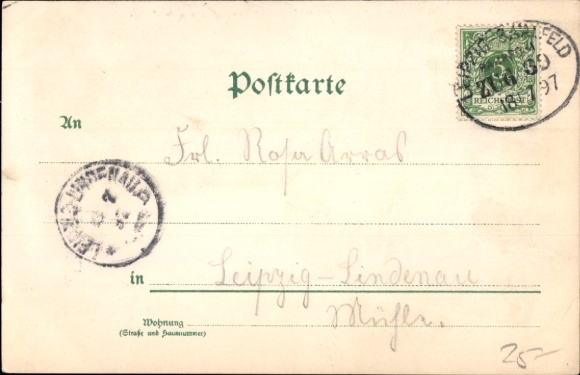 Postkarte
LEIPZIG-SAALFELD
ZUG 39
18 7 97
5
REICHSPOST
An
Frl. Rosa Arras
LEIPZIG-LINDENAU
in
Leipzig-Lindenau
Mühle.
Wohnung
(Straße und Hausnummer)
25-